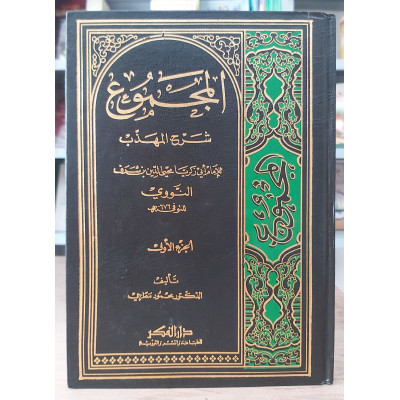 المجموع
شرح المهذب
للإمام أبي زكريا محيي الدين بن شرف
النووي
المتوفى ٦٧٦ هـ
الجزء الأول
تأليف
الدكتور محمود مطرجي
دار الفكر
للطباعة والنشر والتوزيع
المجموع